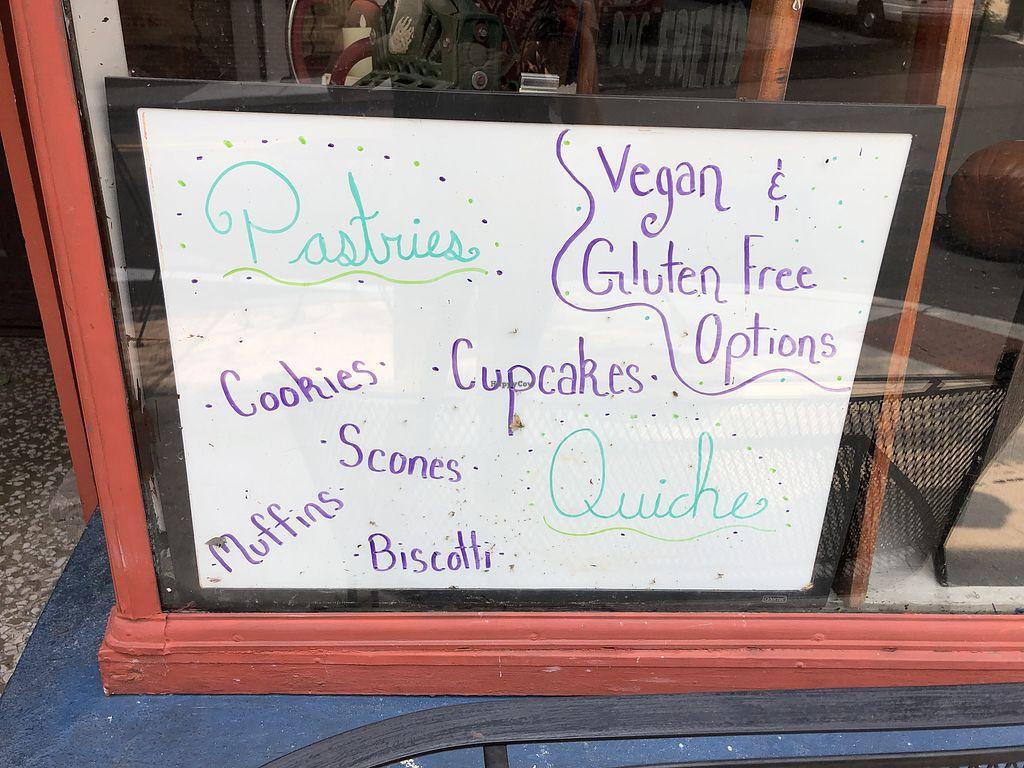 DOG FRIEND
Pastries
Vegan &
Gluten Free
Options
· Cookies ·
· Cupcakes ·
· Scones ·
Muffins
· Biscotti ·
Quiche
HappyCow